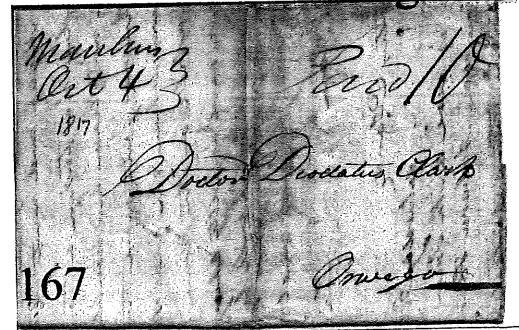 Manlius
Oct 4
1817
Paid 10
Doctor Deodatus Clark
Oswego
167